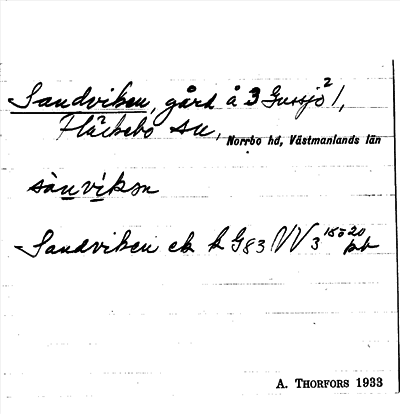 Sandviken, gård å 3 Gussjö 2/1,
Fläckebo sn, Norrbo hd, Västmanlands län
sànvikən
Sandviken ek k G83 NV 3 15-20 bb
A. THORFORS 1933